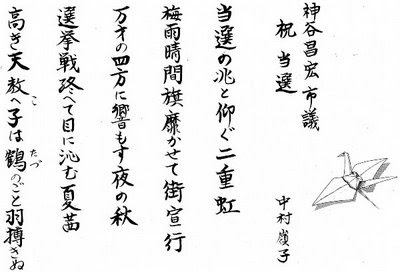 神谷昌宏市議
祝 当選
中村嶺子
当選の兆と仰ぐ二重虹
梅雨晴間旗靡かせて街宣行
万才の四方に響もす夜の秋
選挙戦終へて目に沁む夏茜
高き天教へ子は鶴のごと羽搏きぬ
こ
たづ